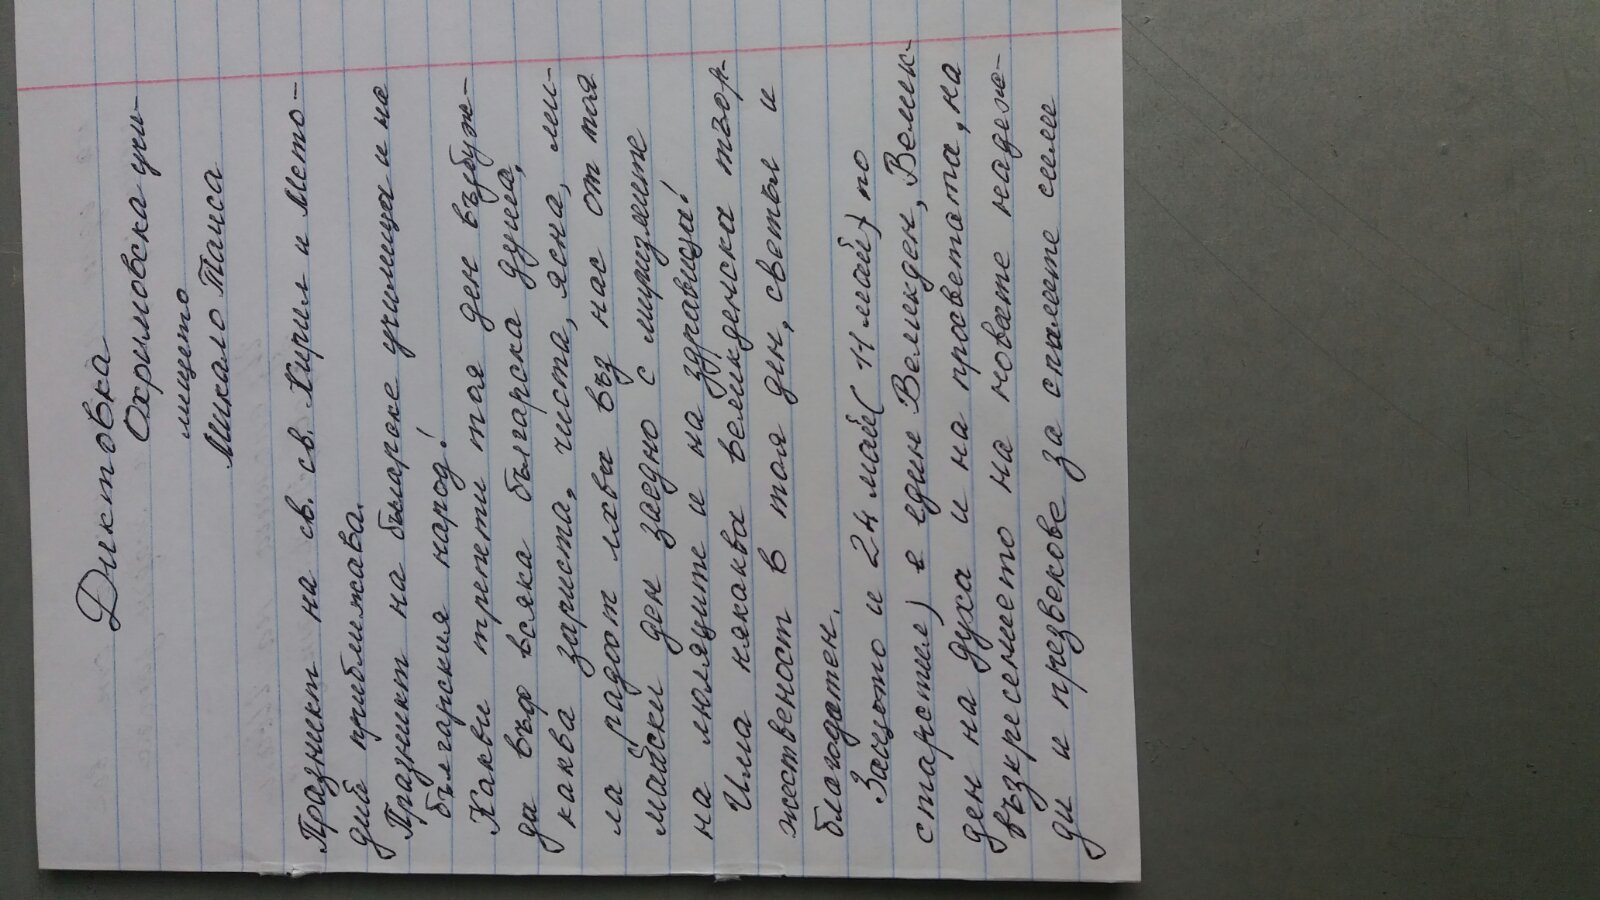 Диктовка
Охримовска учи-
лището
Микало Таиса
Празникт на св. св. Кирил и Мето-
дий приближава.
Празникт на бъларске училища и на
българския народ!
Какви трепети тоя ден възбуж-
да във всяка българска душа,
каква зариста, чиста, ясна, ми-
ла радост лъха въз нас от тоя
майски ден заедно с миризмите
на люляците и на здравища!
Има някаква великденска тзор-
жественост в тоя дин, светъл и
благодатен.
Защото и 24 май (11 май) по
старостил) е един Великден, Велик-
ден на духа и на просветата, на
възкресението на новате надеж-
ди и презвекове за спалите сили